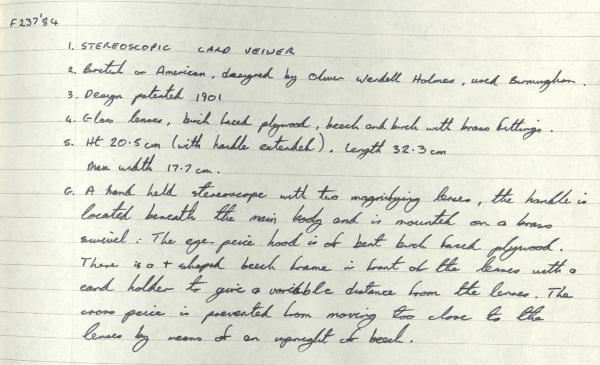 F237'84
1. STEREOSCOPIC CARD VEIWER
2. British or American, designed by Oliver Wendell Holmes, used Birmingham.
3. Design patented 1901
4. Glass lenses, birch faced plywood, beech and birch with brass fittings.
5. Ht 20.5 cm (with handle extended). Length 32.3 cm
Max width 17.7 cm.
6. A hand held stereoscope with two magnifying lenses, the handle is
located beneath the main body and is mounted on a brass
swivel: The eye-peice hood is of bent birch faced plywood.
There is a + shaped beech frame in front of the lenses with a
card holder to give a variable distance from the lenses. The
cross peice is prevented from moving too close to the
lenses by means of an upright of beech.